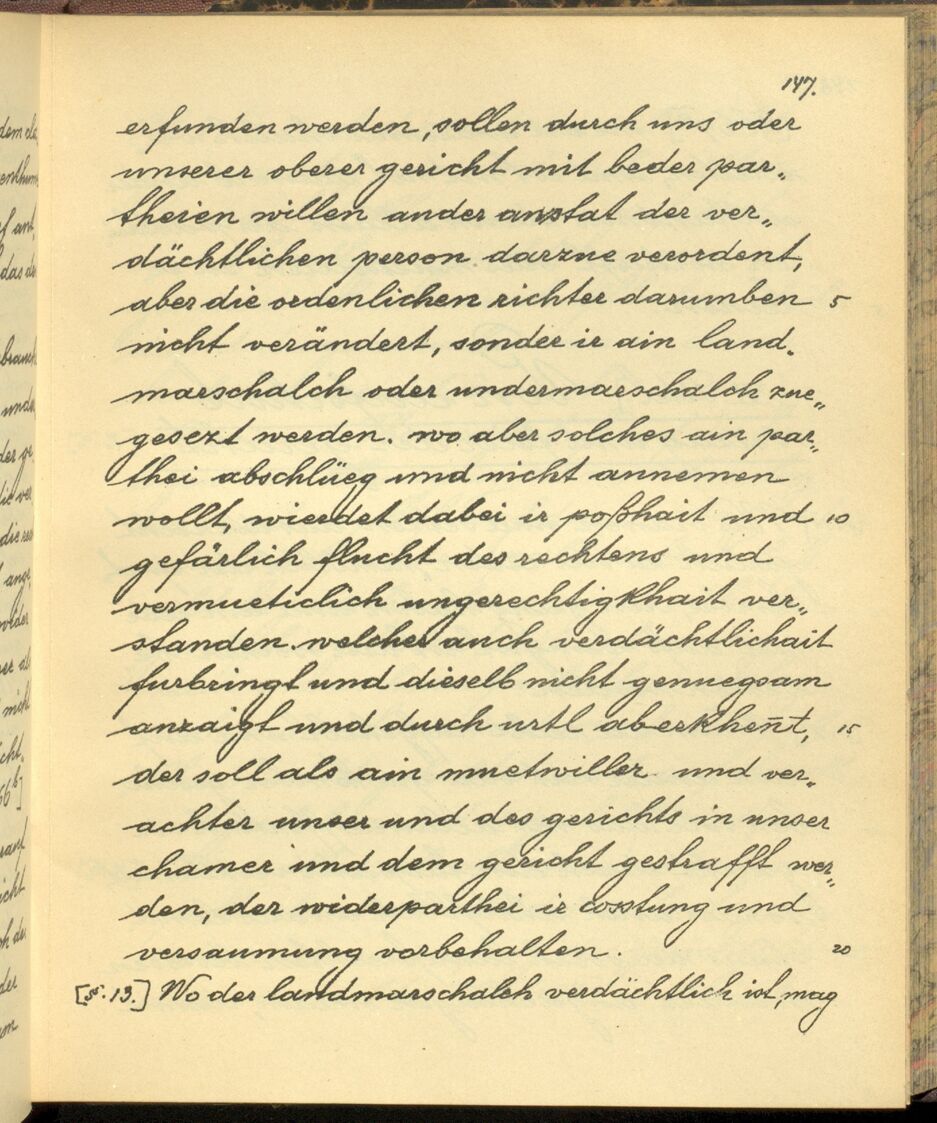 147.
erfunden werden, sollen durch uns oder
unserer oberer gericht mit beder par„
theien willen ander anstat der ver„
dächtlichen person darzue verordent,
aber die ordenlichen richter darumben 5
nicht verändert, sonder ir ain land„
marschalch oder undermarschalch zue„
gesezt werden. wo aber solches ain par„
thei abschlüeg und nicht annemen
wollt, wierdet dabei ir poßhait und 10
gefärlich flucht des rechtens und
vermueticlich ungerechtigkhait ver„
standen. welcher auch verdächtlichait
furbringt und dieselb nicht genuegsam
anzaigt und durch urtl aberkhen̄t, 15
der soll als ain muetwiller und ver„
achter unser und des gerichts in unser
chamer und dem gericht gestrafft wer„
den, der widerparthei ir cosstung und
versaumung vorbehalten. 20
[§. 13.] Wo der landmarschalch verdächtlich ist, mag